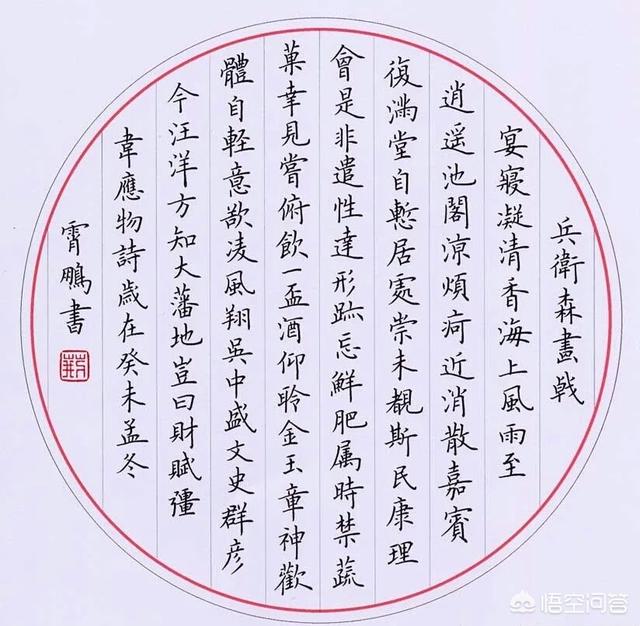 兵衛森畫戟
宴寢凝清香海上風雨至
逍遥池閣涼煩疴近消散嘉賓
復滿堂自慙居處崇未覩斯民康理
會是非遣性達形跡忘鮮肥属時禁蔬
菓幸見嘗俯飲一盃酒仰聆金玉章神歡
體自軽意欲凌風翔吳中盛文史群彦
今汪洋方知大藩地豈曰財賦彊
韋應物詩歲在癸未孟冬
霄鵬書
悟空问答